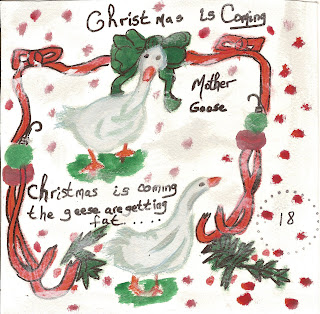 Christmas is Coming
Mother
Goose
Christmas is coming
the geese are getting
fat.....
18